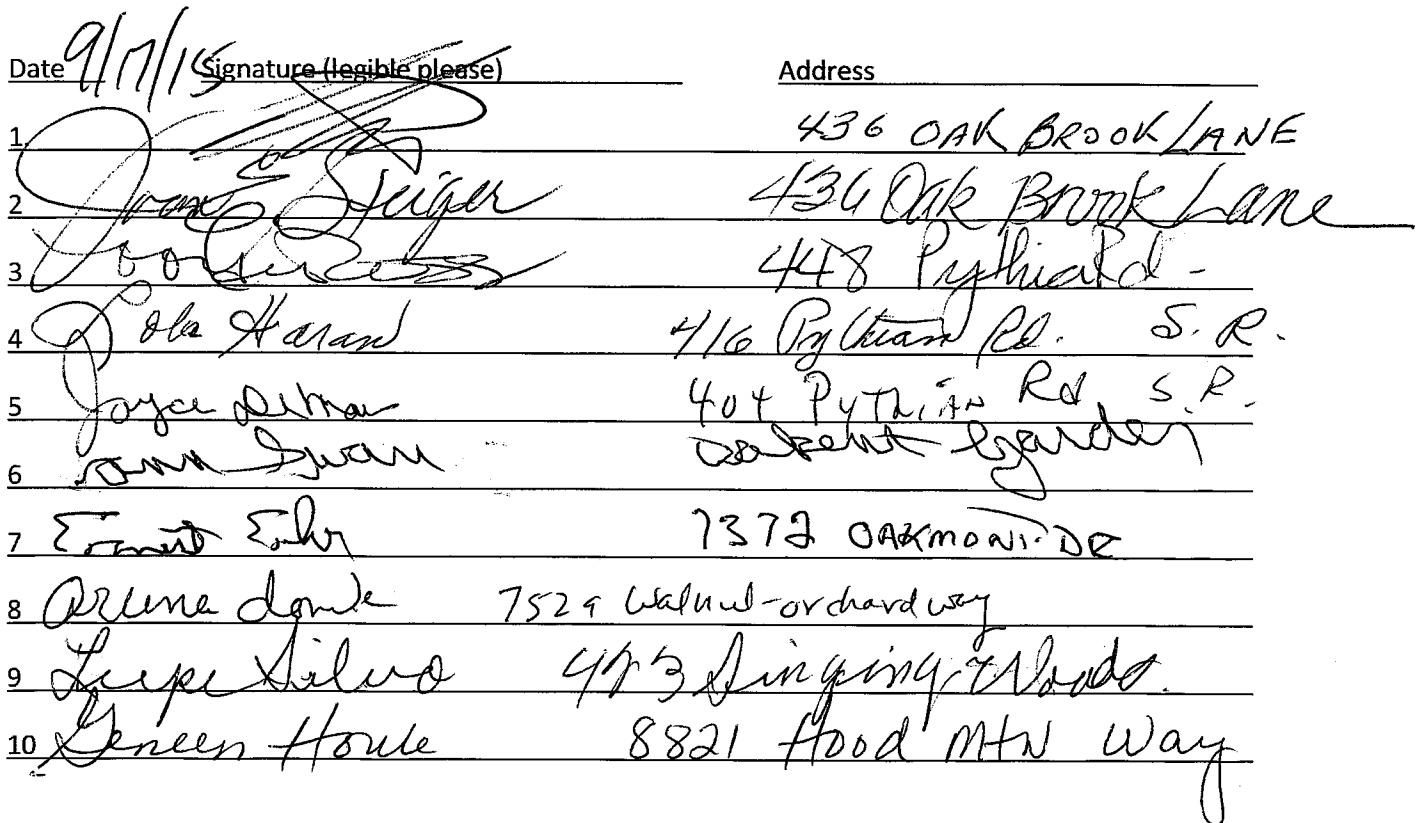 Date 9/17/15 Signature (legible please) Address
1 436 OAK BROOK LANE
2 Joan E Steiger 436 Oak Brook Lane
3 448 Pythian Rd -
4 Lola Haran 416 Pythian Rd. S. R.
5 Joyce 404 PYTHIAN Rd S. R.
6 Ann Swan
7 Ernest Ehr 1372 OAKMONT DR
8 Aruna 7529 Walnut-orchard way
9 Lupe Silva 423 Singing Woods.
10 Geneen Houle 8821 Hood MtN Way